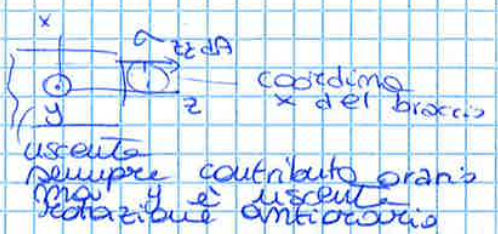 x
σzz dA
coordina
x del braccio
z
y
uscente
sempre contributo orario
ma y è uscente
rotazione antioraria